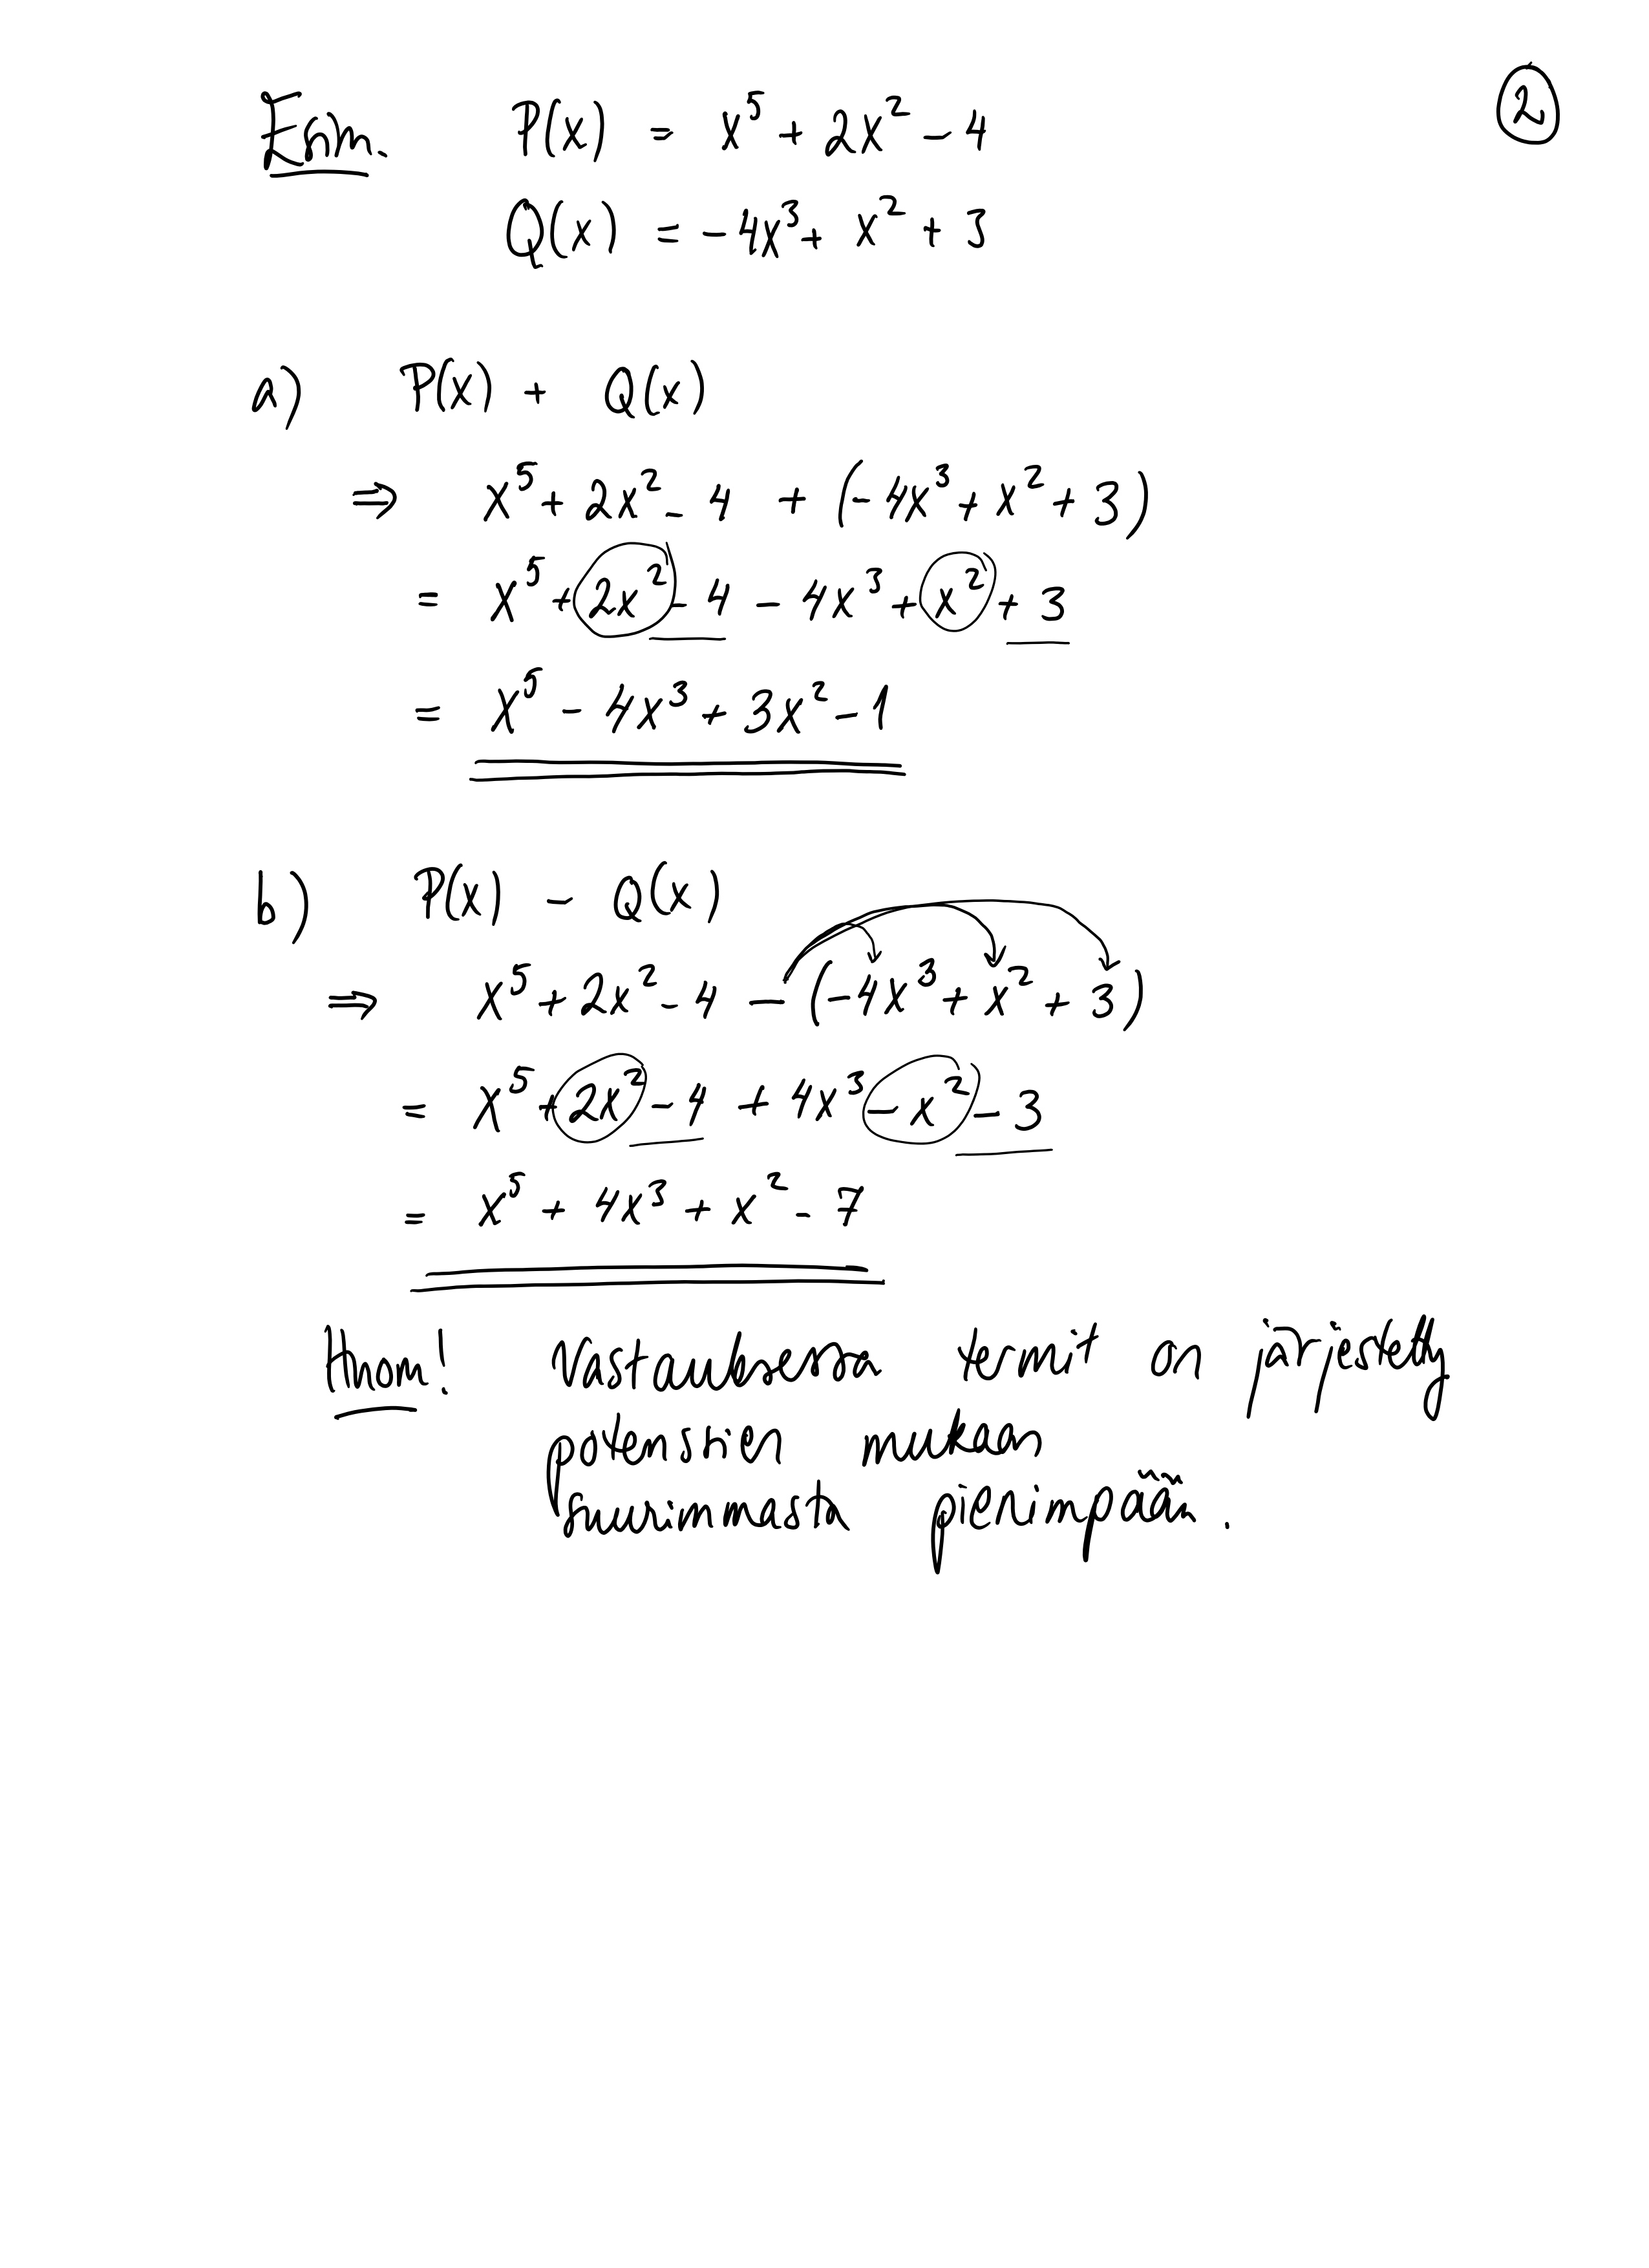 Esim. P(x) = x⁵ + 2x² - 4
②
Q(x) = -4x³ + x² + 3
a) P(x) + Q(x)
⇒ x⁵ + 2x² - 4 + (-4x³ + x² + 3)
= x⁵ + 2x² - 4 - 4x³ + x² + 3
= x⁵ - 4x³ + 3x² - 1
b) P(x) - Q(x)
⇒ x⁵ + 2x² - 4 - (-4x³ + x² + 3)
= x⁵ + 2x² - 4 + 4x³ - x² - 3
= x⁵ + 4x³ + x² - 7
Huom! Vastauksessa termit on järjestetty
potenssien mukaan
suurimmasta pienimpään.